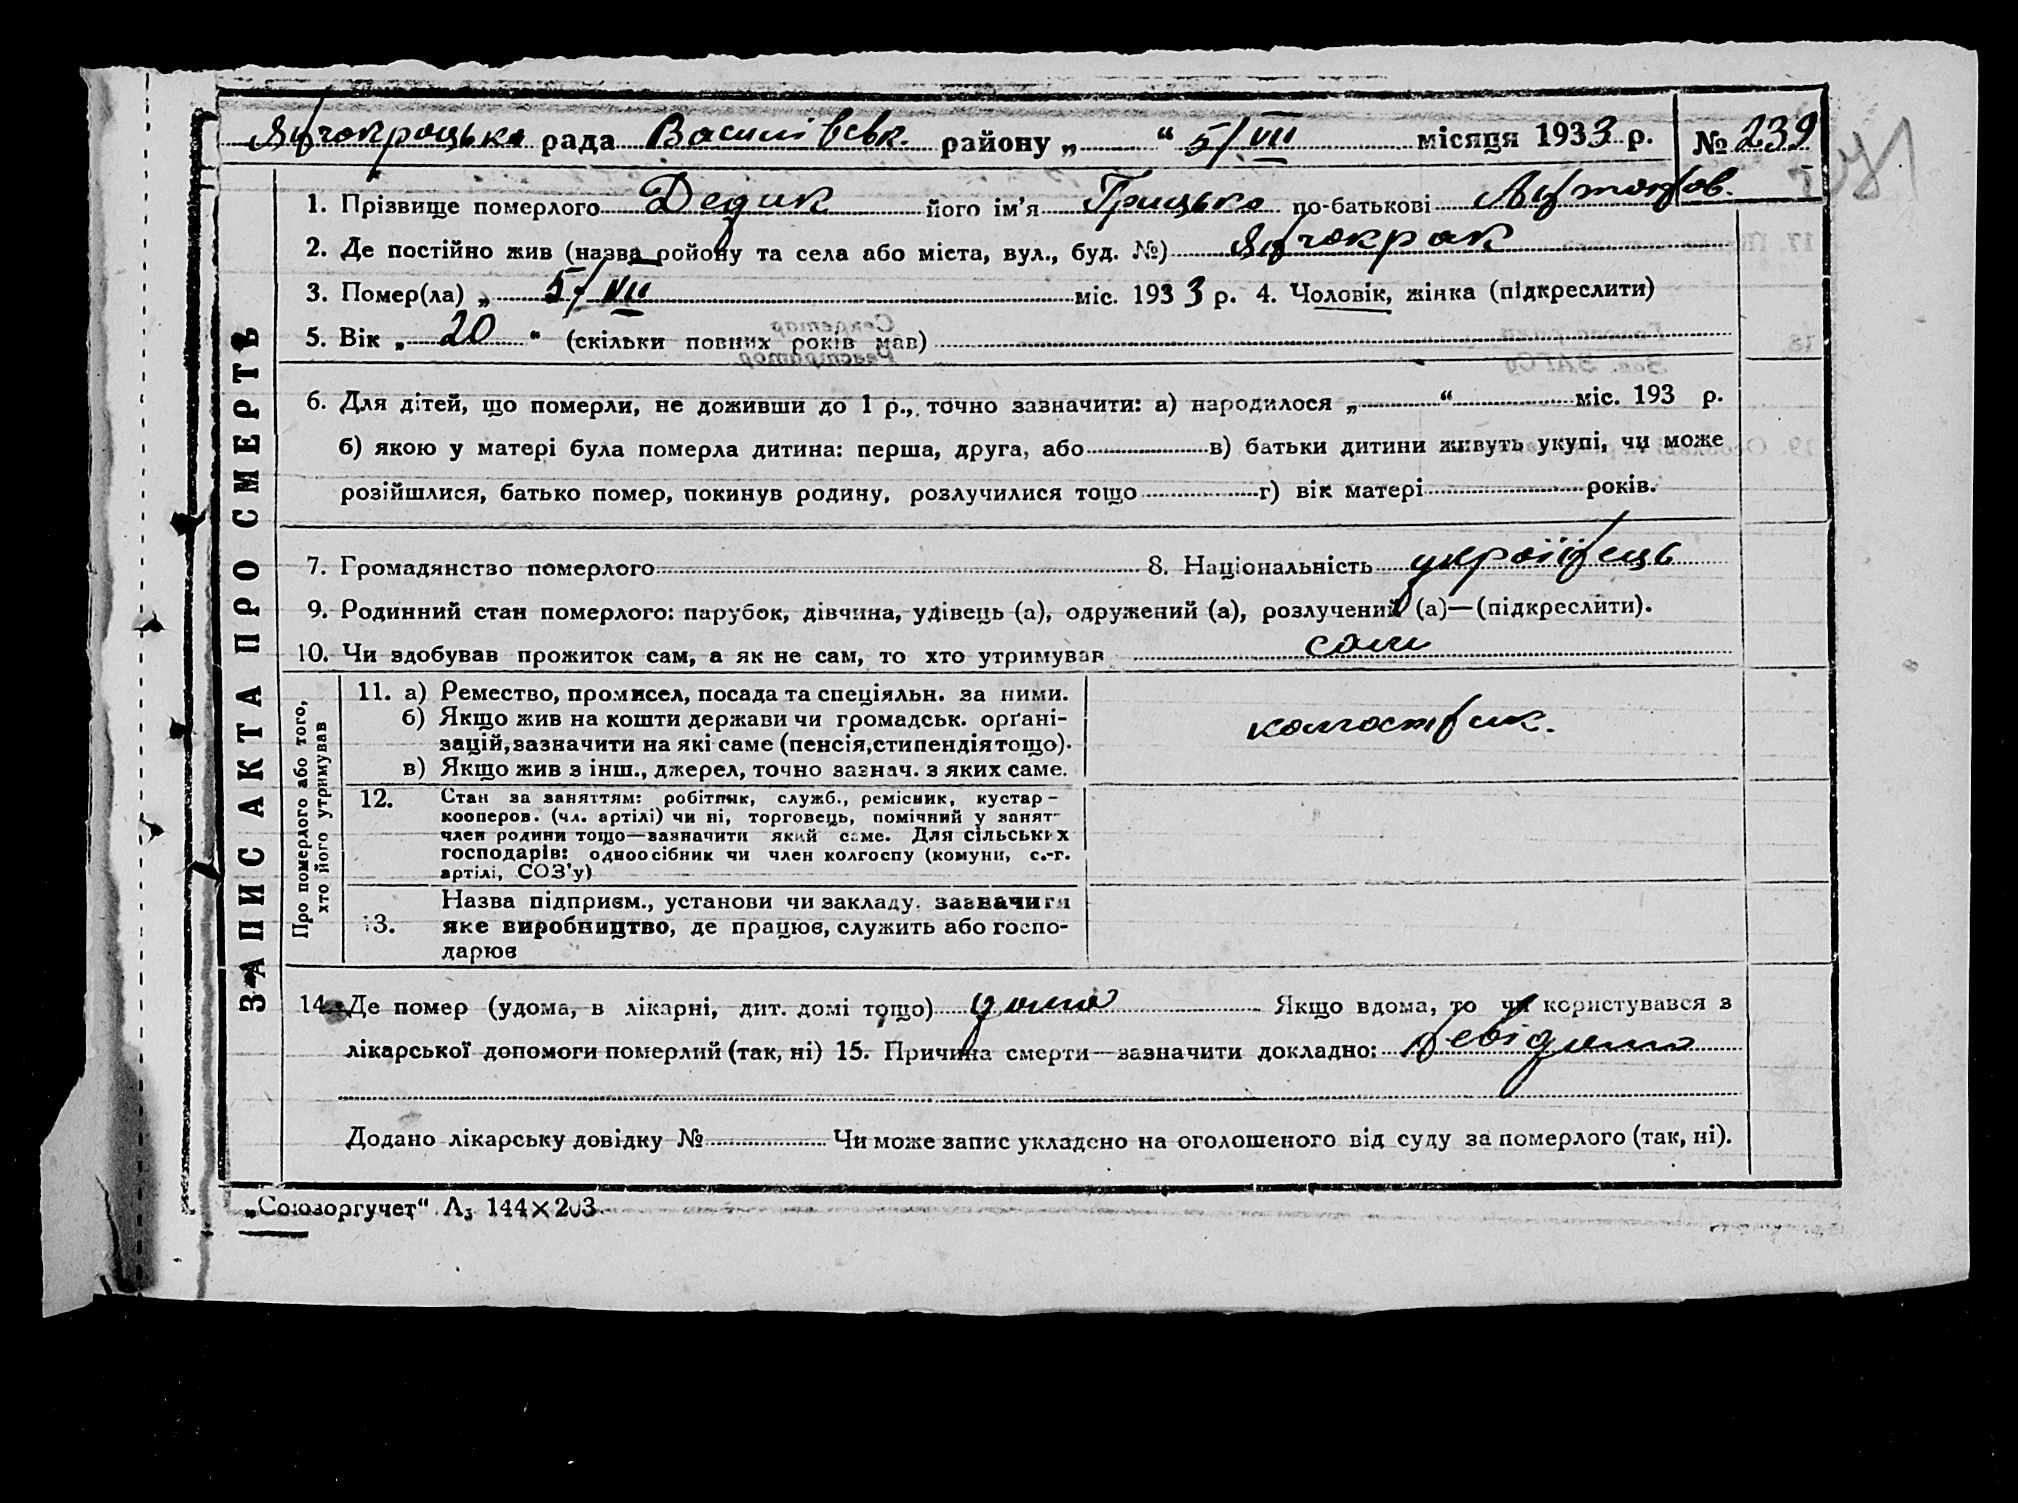 Янчокрацька рада Василівськ. району „ “ 5/VII місяця 1933 р. № 239
1. Прізвище померлого Дедик його ім’я Грицько по-батькові Антонов.
2. Де постійно жив (назва ройону та села або міста, вул., буд. №) Янчокрак
3. Помер(ла) „ 5/VII міс. 1933 р. 4. Чоловік, жінка (підкреслити)
5. Вік „ 20 “ (скільки повних років мав)
6. Для дітей, що померли, не доживши до 1 р., точно зазначити: а) народилося „ “ міс. 193 р.
б) якою у матері була померла дитина: перша, друга, або в) батьки дитини живуть укупі, чи може
розійшлися, батько помер, покинув родину, розлучилися тощо г) вік матері років.
7. Громадянство померлого 8. Національність українець
9. Родинний стан померлого: парубок, дівчина, удівець (а), одружений (а), розлучений (а)—(підкреслити).
10. Чи здобував прожиток сам, а як не сам, то хто утримував сам
ЗАПИС АКТА ПРО СМЕРТЬ
Про померлого або того,
хто його утримував
11. а) Ремество, промисел, посада та спеціяльн. за ними.
б) Якщо жив на кошти держави чи громадськ. орґані-
зацій, зазначити на які саме (пенсія, стипендія тощо).
в) Якщо жив з інш., джерел, точно зазнач. з яких саме.
колгоспник.
12. Стан за заняттям: робітник, служб., ремісник, кустар-
кооперов. (чл. артілі) чи ні, торговець, помічний у занят-
член родини тощо—зазначити який саме. Для сільських
господарів: одноосібник чи член колгоспу (комуни, с.-г.
артілі, СОЗ’у)
13. Назва підприєм., установи чи закладу, зазначити
яке виробництво, де працює, служить або госпо-
дарює
14. Де помер (удома, в лікарні, дит. домі тощо) дома Якщо вдома, то чи користувався з
лікарської допомоги померлий (так, ні) 15. Причина смерти—зазначити докладно: Невідомо
Додано лікарську довідку № Чи може запис укладено на оголошеного від суду за померлого (так, ні).
„Союзоргучет“ А₃ 144×203